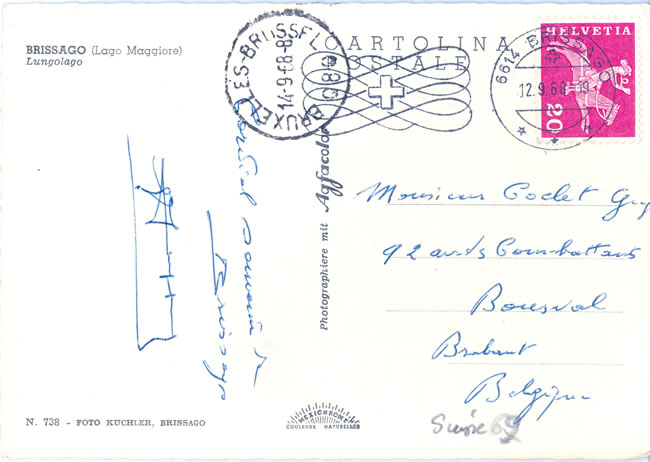 BRISSAGO (Lago Maggiore)
Lungolago
CARTOLINA
POSTALE
BRUXELLES-BRUSSEL
14-9-68-8
6614 BRISSAGO
12.9.68
HELVETIA
20
Photographiere mit Agfacolor
Cordial souvenir de
Brissago
Monsieur Coclet Guy
92 av. des Combattans
Bousval
Brabant
Belgique
Suisse 69
N. 738 - FOTO KUCHLER, BRISSAGO
MEXICHROME
COULEURS NATURELLES